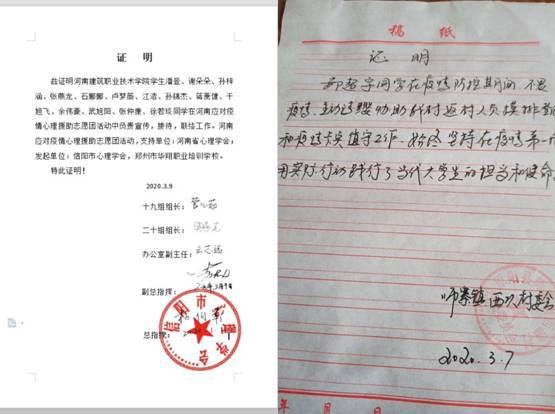 证 明
兹证明河南建筑职业技术学院学生潘登、谢朵朵、孙梓
涵、张燕龙、石娜娜、卢梦薇、江浩、孙锦杰、蒋萧僮、干
旭飞、余伟豪、武旭阳、张仲康、徐若琰同学在河南应对疫
情心理援助志愿团活动中负责宣传,接待,联络工作。河南
应对疫情心理援助志愿团活动,支持单位:河南省心理学会;
发起单位:信阳市心理学会,郑州市华翔职业培训学校。
特此证明!
2020.3.9
十九组组长:
二十组组长:
办公室副主任:
副总指挥:
总指挥:
信阳市心理学会
稿 纸
证 明
同学在疫情防控期间 不畏
疫情,主动请缨协助我村返村人员摸排
和疫情卡点值守工作,始终坚持在疫情第一
用实际行动践行了当代大学生的担当和使命
师寨镇
2020.3.7
年 月 日